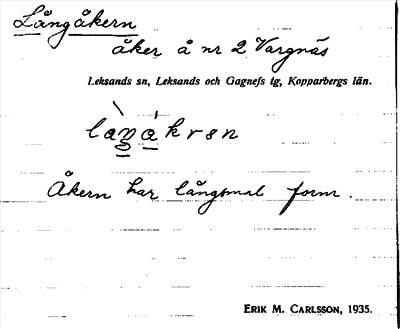 Långåkern
åker å nr 2 Vargnäs
Leksands sn, Leksands och Gagnefs tg, Kopparbergs län.
làŋákrən
Åkern har långsmal form.
ERIK M. CARLSSON, 1935.